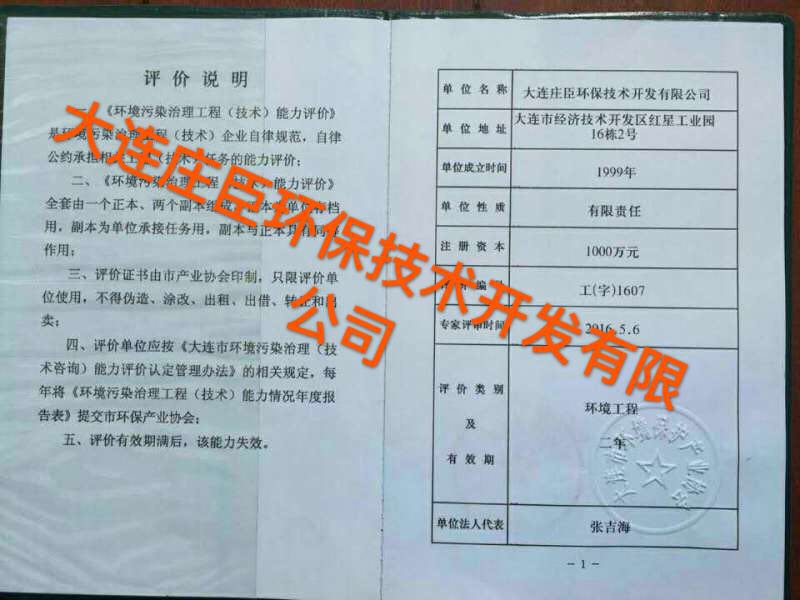 评价说明
一、《环境污染治理工程（技术）能力评价》
是环境污染治理工程（技术）企业自律规范，自律
公约承担相 工 （技术）任务的能力评价；
二、《环境污染治理工程（技术）能力评价》
全套由一个正本、两个副本组成，正本为单位存档
用，副本为单位承接任务用，副本与正本具有同等
作用；
三、评价证书由市产业协会印制，只限评价单
位使用，不得伪造、涂改、出租、出借、转让和出
卖；
四、评价单位应按《大连市环境污染治理（技
术咨询）能力评价认定管理办法》的相关规定，每
年将《环境污染治理工程（技术）能力情况年度报
告表》提交市环保产业协会；
五、评价有效期满后，该能力失效。
单位名称 大连庄臣环保技术开发有限公司
单位地址 大连市经济技术开发区红星工业园
16栋2号
单位成立时间 1999年
单位性质 有限责任
注册资本 1000万元
编 工(字)1607
专家评审时间 2016.5.6
评价类别
及
有效期
环境工程
二年
单位法人代表 张吉海
－1－
大连市环境保护产业协会
大连庄臣环保技术开发有限
公司